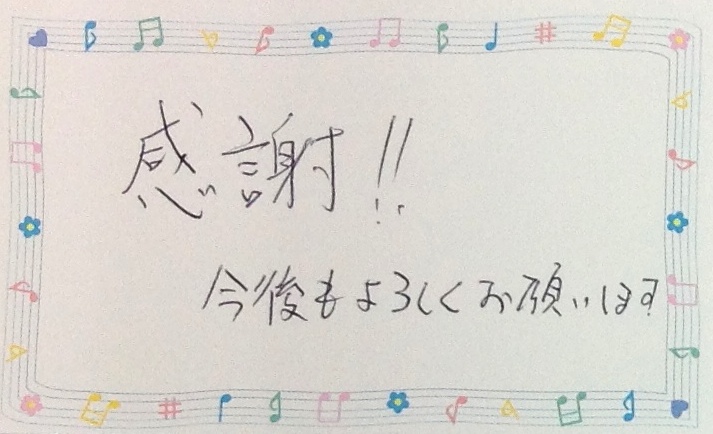 感謝!!
今後もよろしくお願いします